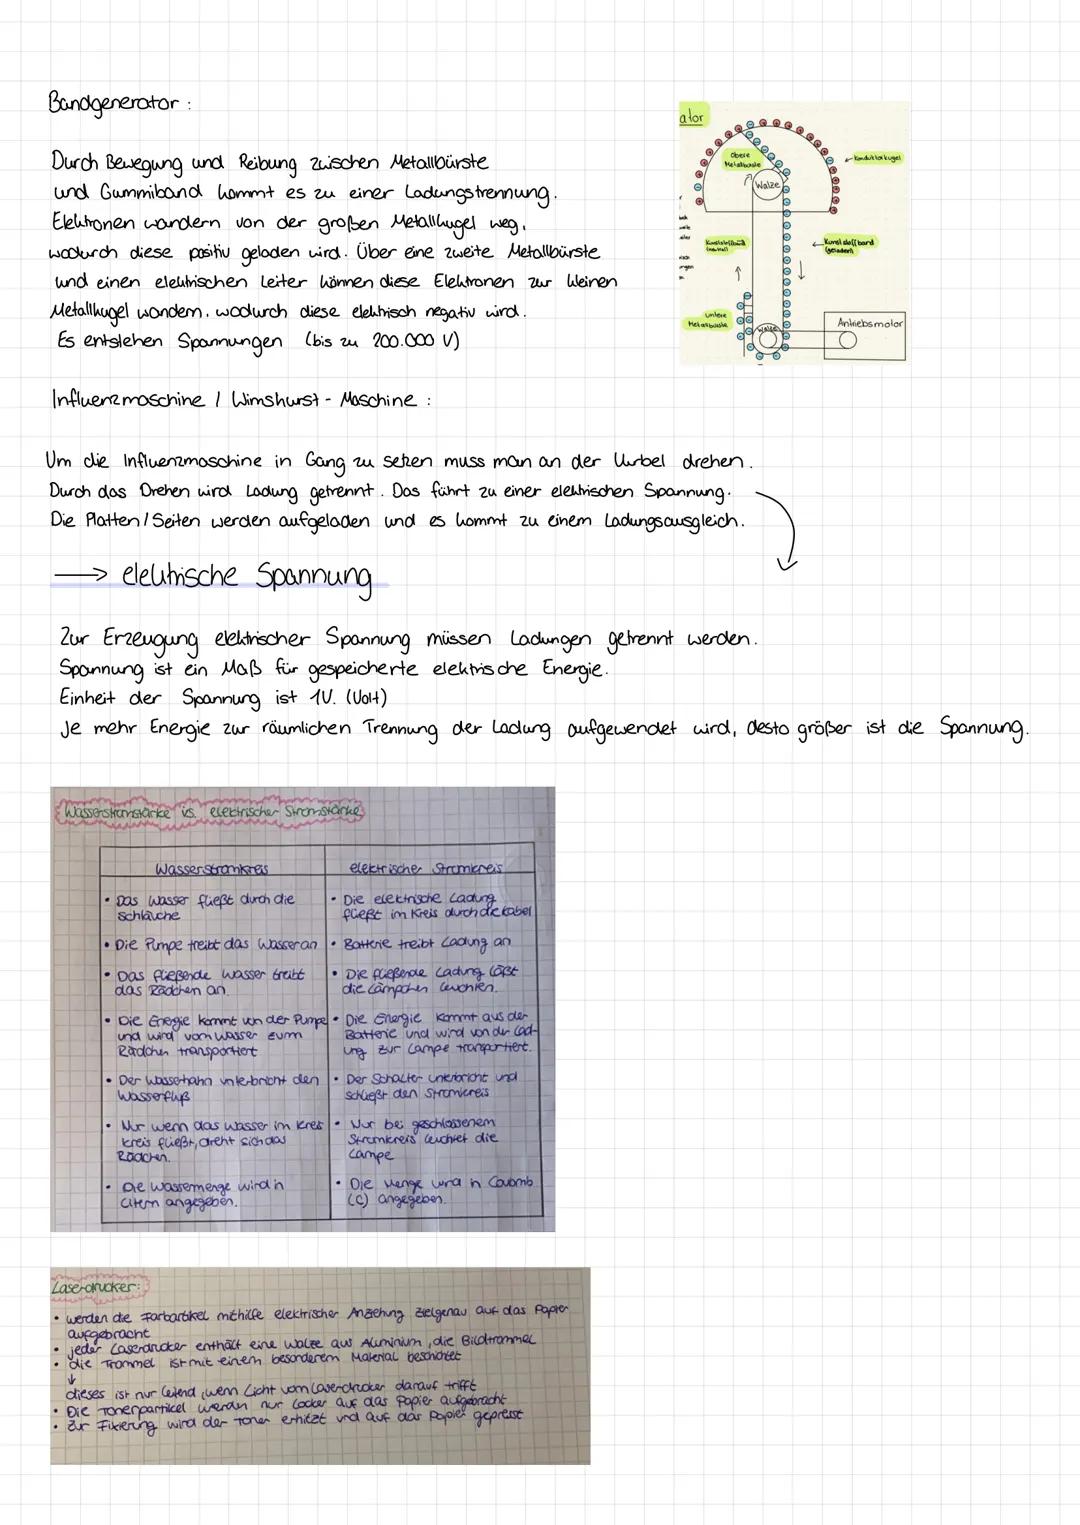 Bandgenerator :
ator
Durch Bewegung und Reibung zwischen Metallbürste
und Gummiband kommt es zu einer Ladungstrennung.
Elektronen wandern von der großen Metallkugel weg,
wodurch diese positiv geladen wird. Über eine zweite Metallbürste
und einen elektrischen Leiter können diese Elektronen zur kleinen
Metallkugel wandern, wodurch diese elektrisch negativ wird.
Es entstehen Spannungen (bis zu 200.000 V)
obere
Metallbürste
Walze
Konduktorkugel
Kunststoffband
(neutral)
Kunststoffband
(geladen)
untere
Metallbürste
Walze
Antriebsmotor
Influenzmaschine / Wimshurst - Maschine :
Um die Influenzmaschine in Gang zu setzen muss man an der Kurbel drehen.
Durch das Drehen wird Ladung getrennt. Das führt zu einer elektrischen Spannung.
Die Platten / Seiten werden aufgeladen und es kommt zu einem Ladungsausgleich.
→ elektrische Spannung
Zur Erzeugung elektrischer Spannung müssen Ladungen getrennt werden.
Spannung ist ein Maß für gespeicherte elektrische Energie.
Einheit der Spannung ist 1V. (Volt)
Je mehr Energie zur räumlichen Trennung der Ladung aufgewendet wird, desto größer ist die Spannung.
Wasserstromstärke vs. elektrischer Stromstärke
Wasserstromkreis
• Das Wasser fließt durch die
schläuche
• Die Pumpe treibt das Wasser an
• Das fließende Wasser treibt
das Rädchen an.
• Die Energie kommt von der Pumpe
und wird vom Wasser zum
Rädchen transportiert
• Der Wasserhahn unterbricht den
Wasserfluß
• Nur wenn das Wasser im Kreis
kreis fließt, dreht sich das
Rädchen.
• Die Wassermenge wird in
Litern angegeben.
elektrischer Stromkreis
• Die elektrische Ladung
fließt im Kreis durch die Kabel
• Batterie treibt Ladung an
• Die fließende Ladung läßt
die Lämpchen leuchten.
• Die Energie kommt aus der
Batterie und wird von der Lad-
ung zur Lampe transportiert.
• Der Schalter unterbricht und
schließt den Stromkreis
• Nur bei geschlossenem
Stromkreis leuchtet die
Lampe
• Die Menge wird in Coulomb
(C) angegeben.
Laserdrucker:
• werden die Farbartikel mithilfe elektrischer Anziehung zielgenau auf das Papier
aufgebracht
• jeder Laserdrucker enthält eine Walze aus Aluminium, die Bildtrommel
• die Trommel ist mit einem besonderem Material beschichtet
↓
dieses ist nur leitend, wenn Licht vom Laserdrucker darauf trifft
• Die Tonerpartikel werden nur locker auf das Papier aufgebracht
• Zur Fixierung wird der Toner erhitzt und auf das Papier gepresst